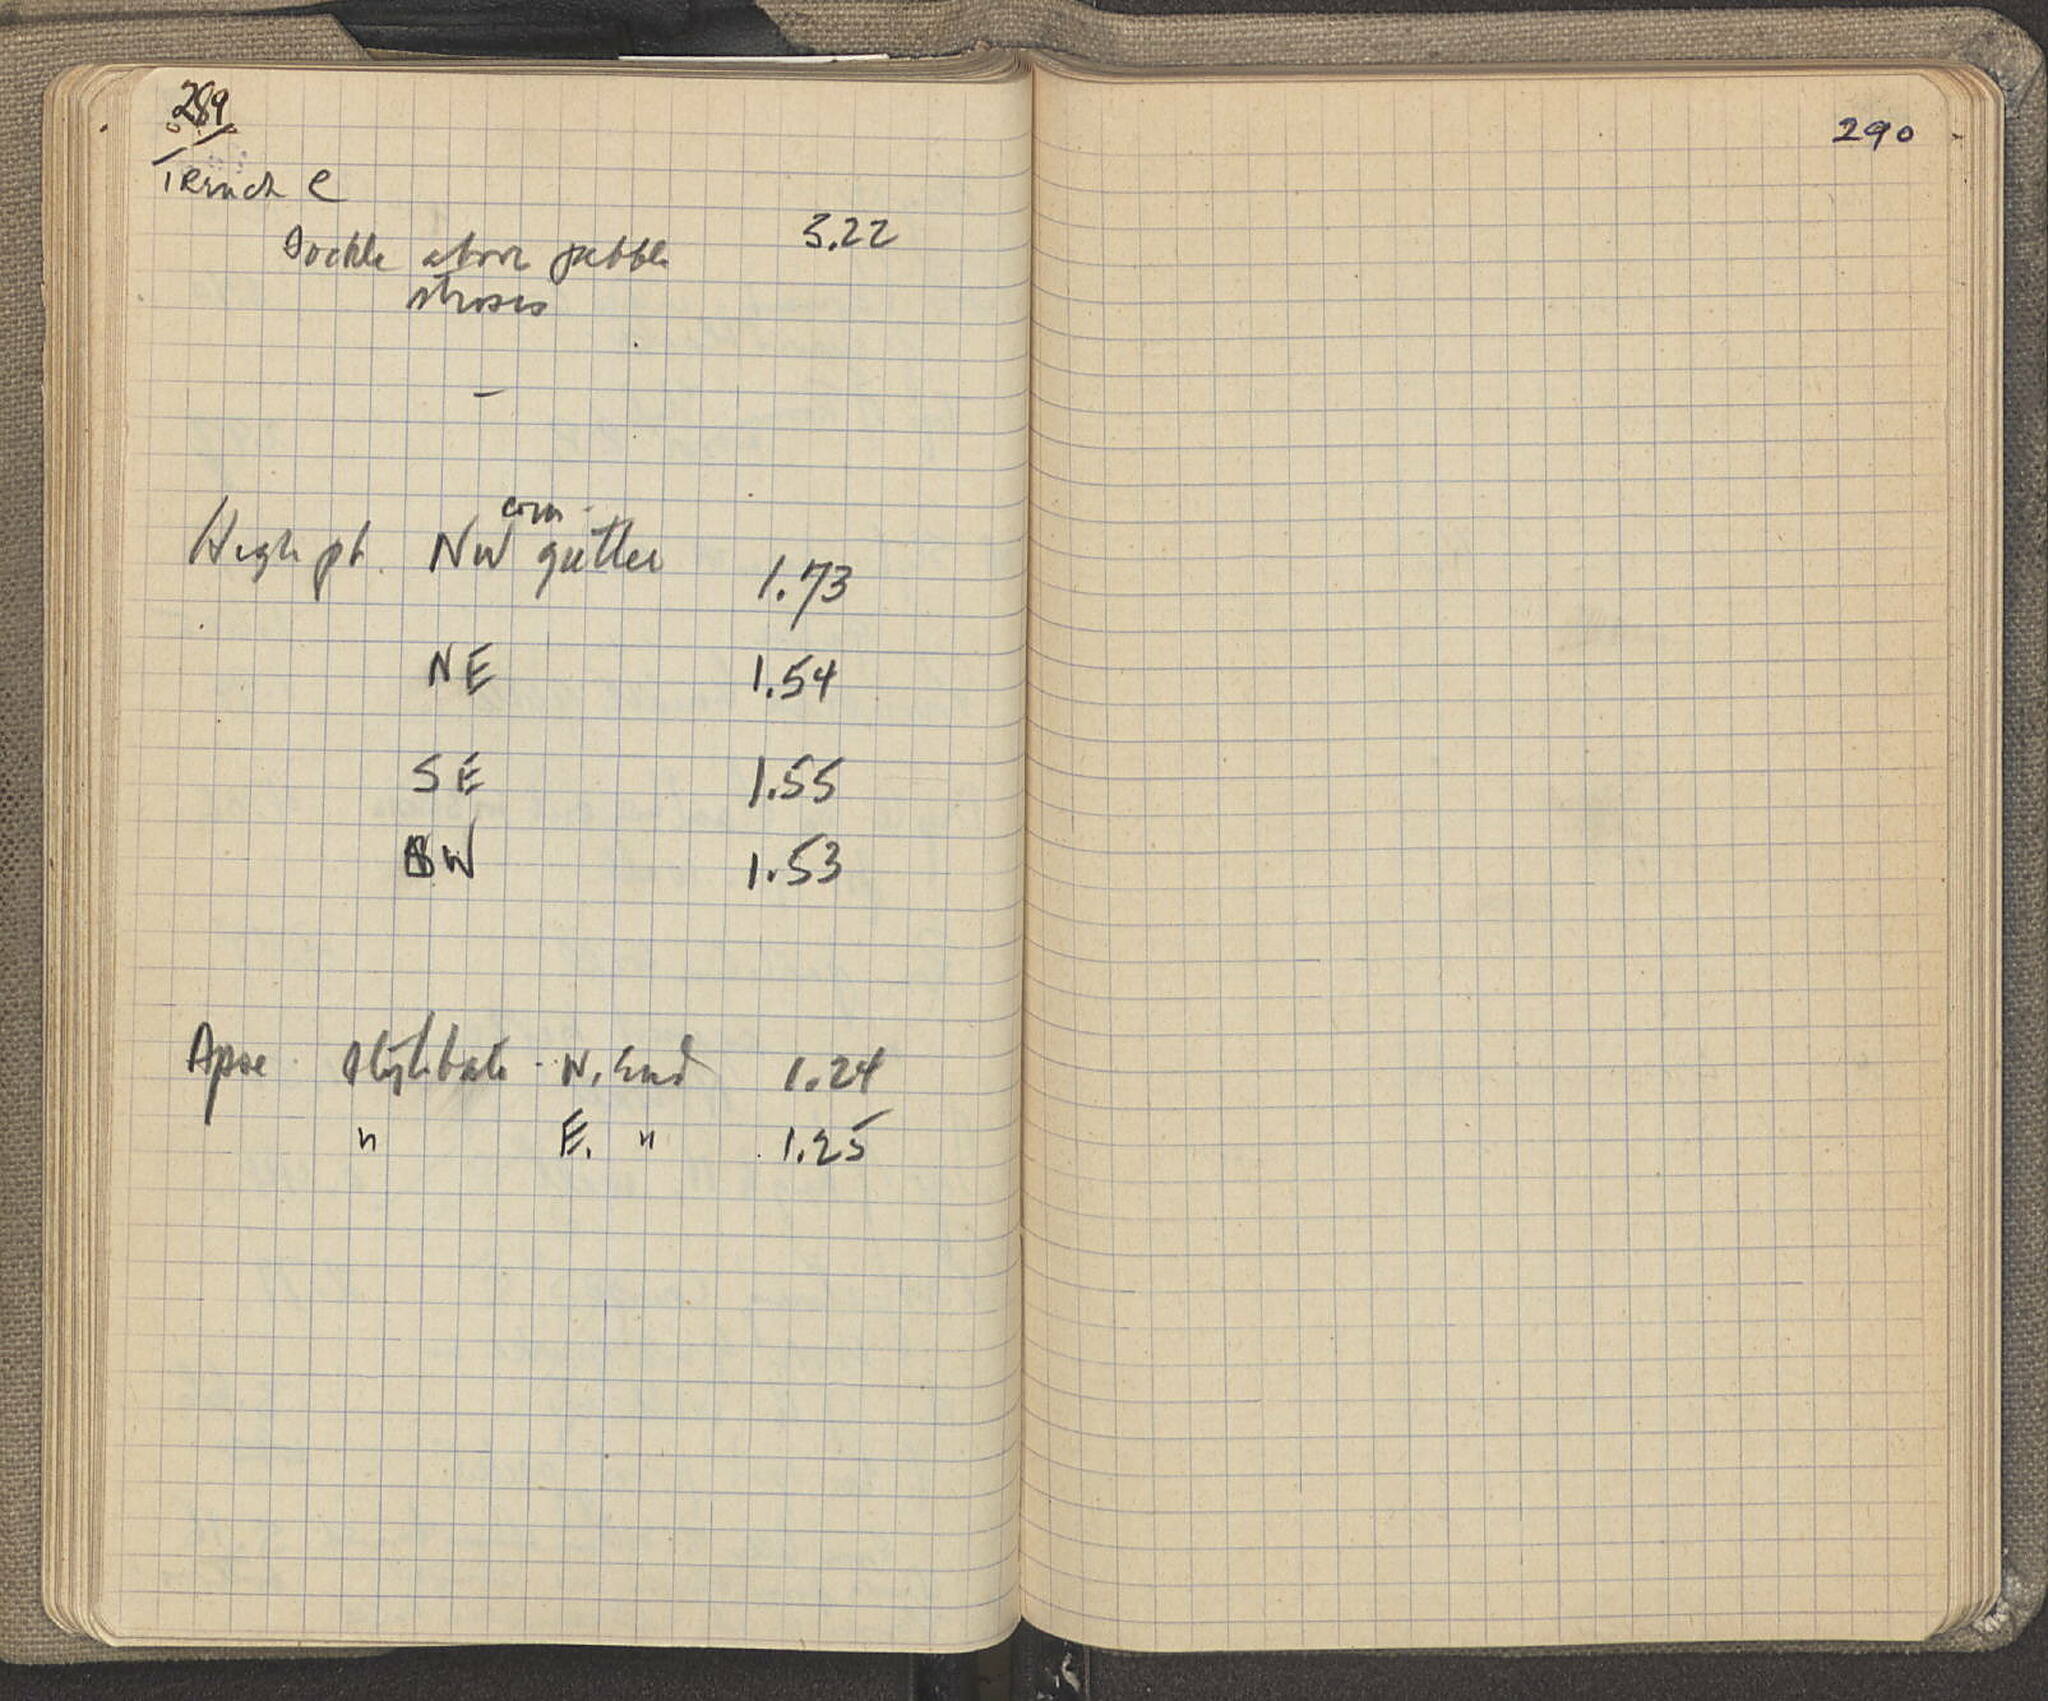 289
Trench C
Sockle above pebble 3.22
stroses
corn.
High pt. NW gutter 1.73
NE 1.54
SE 1.55
SW 1.53
Apse. Stylobate - N. End 1.24
" E. " 1.25
290